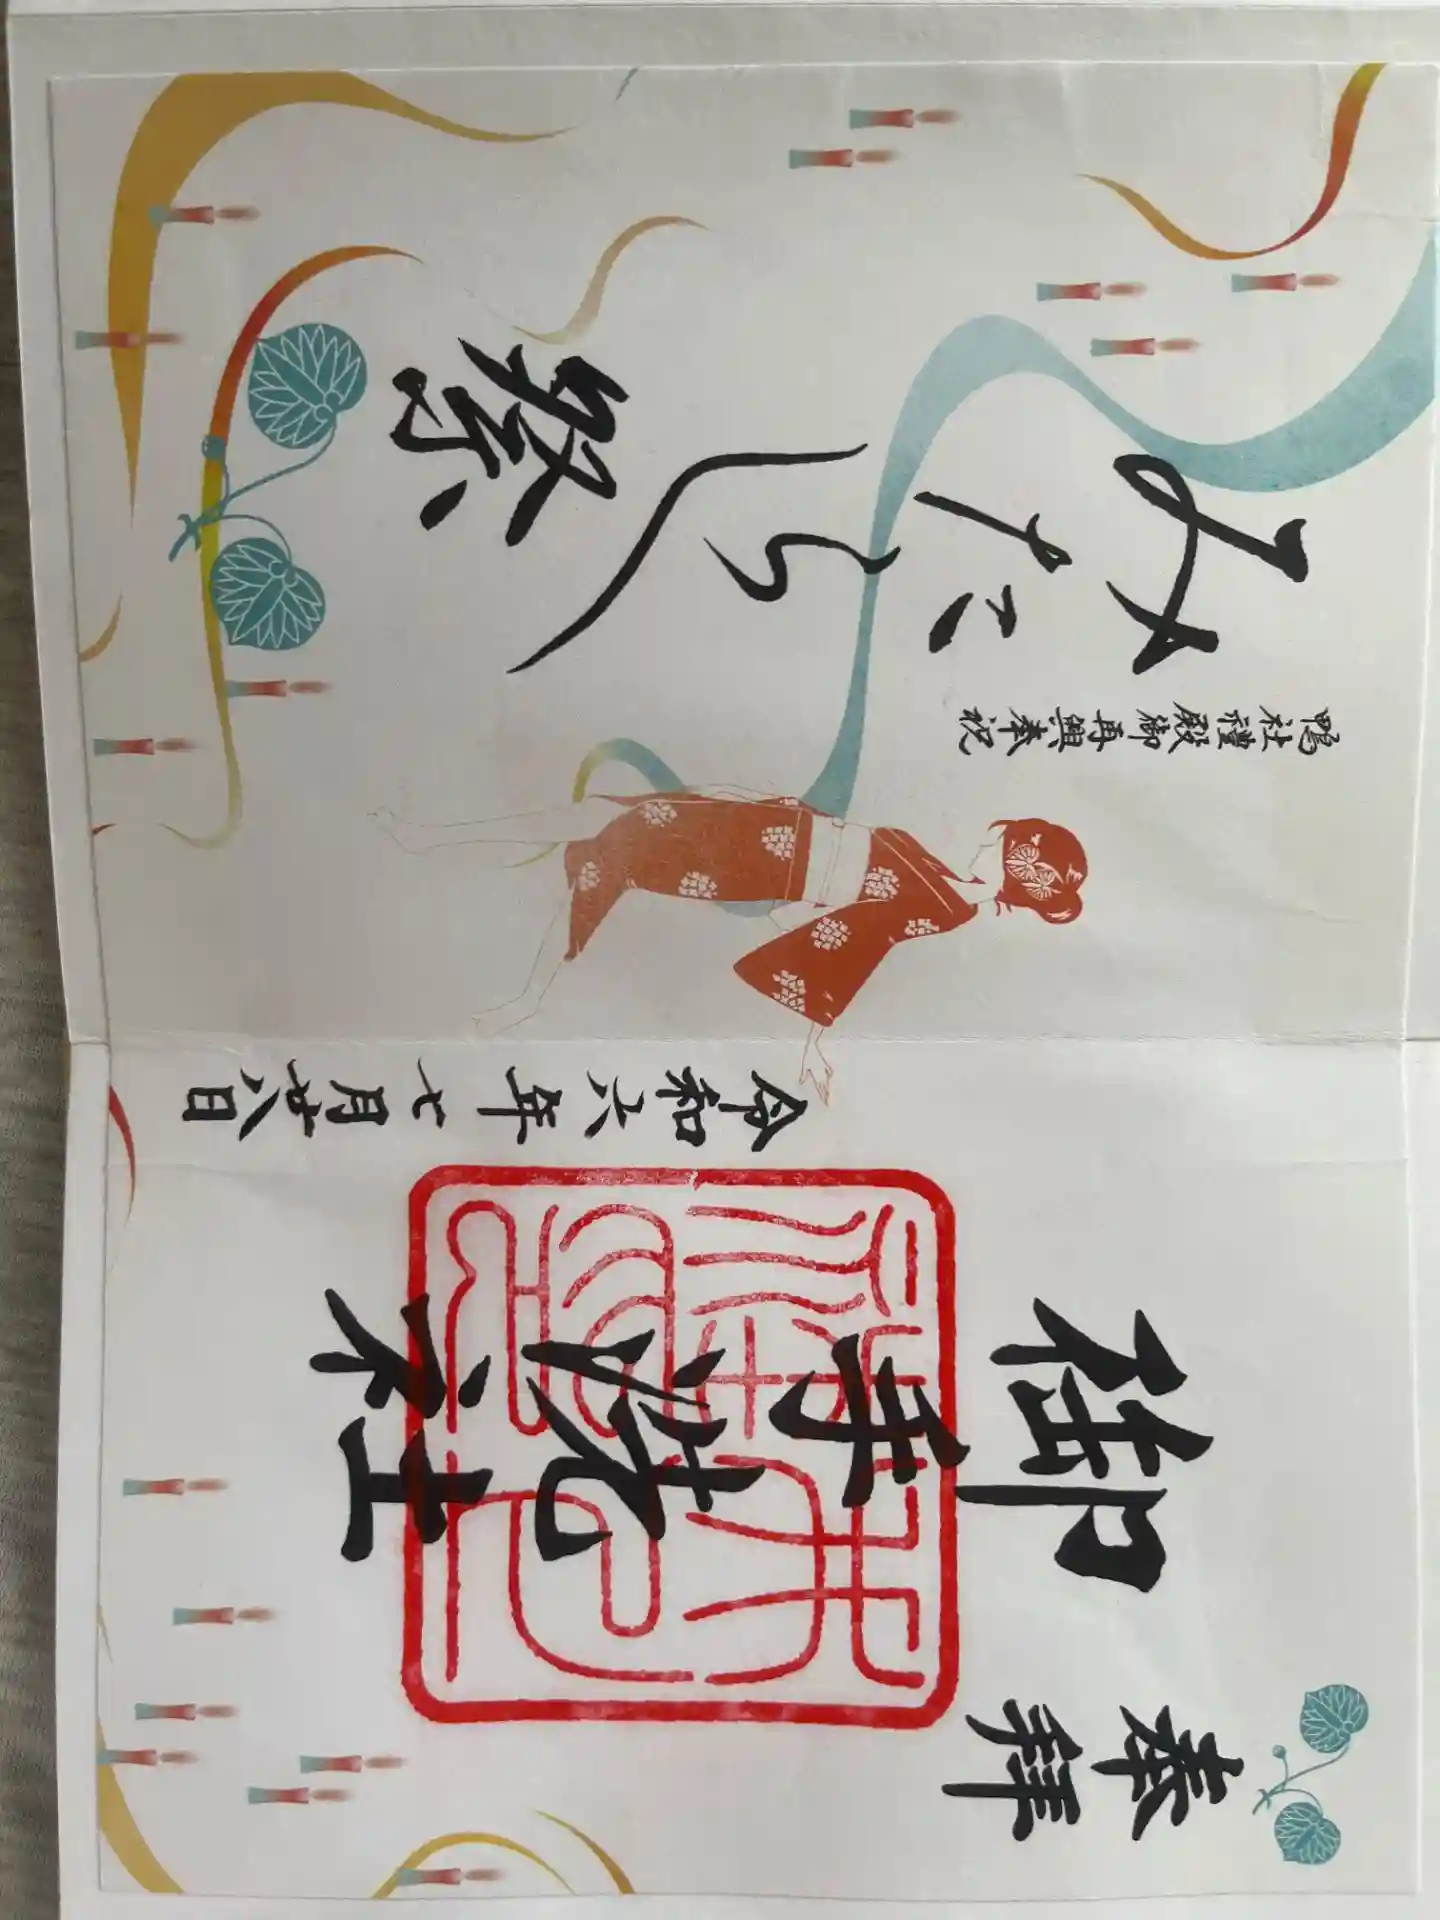 奉拝
御手洗社
令和六年七月廿八日
鴨社禮殿御再興奉祝
みたらし祭